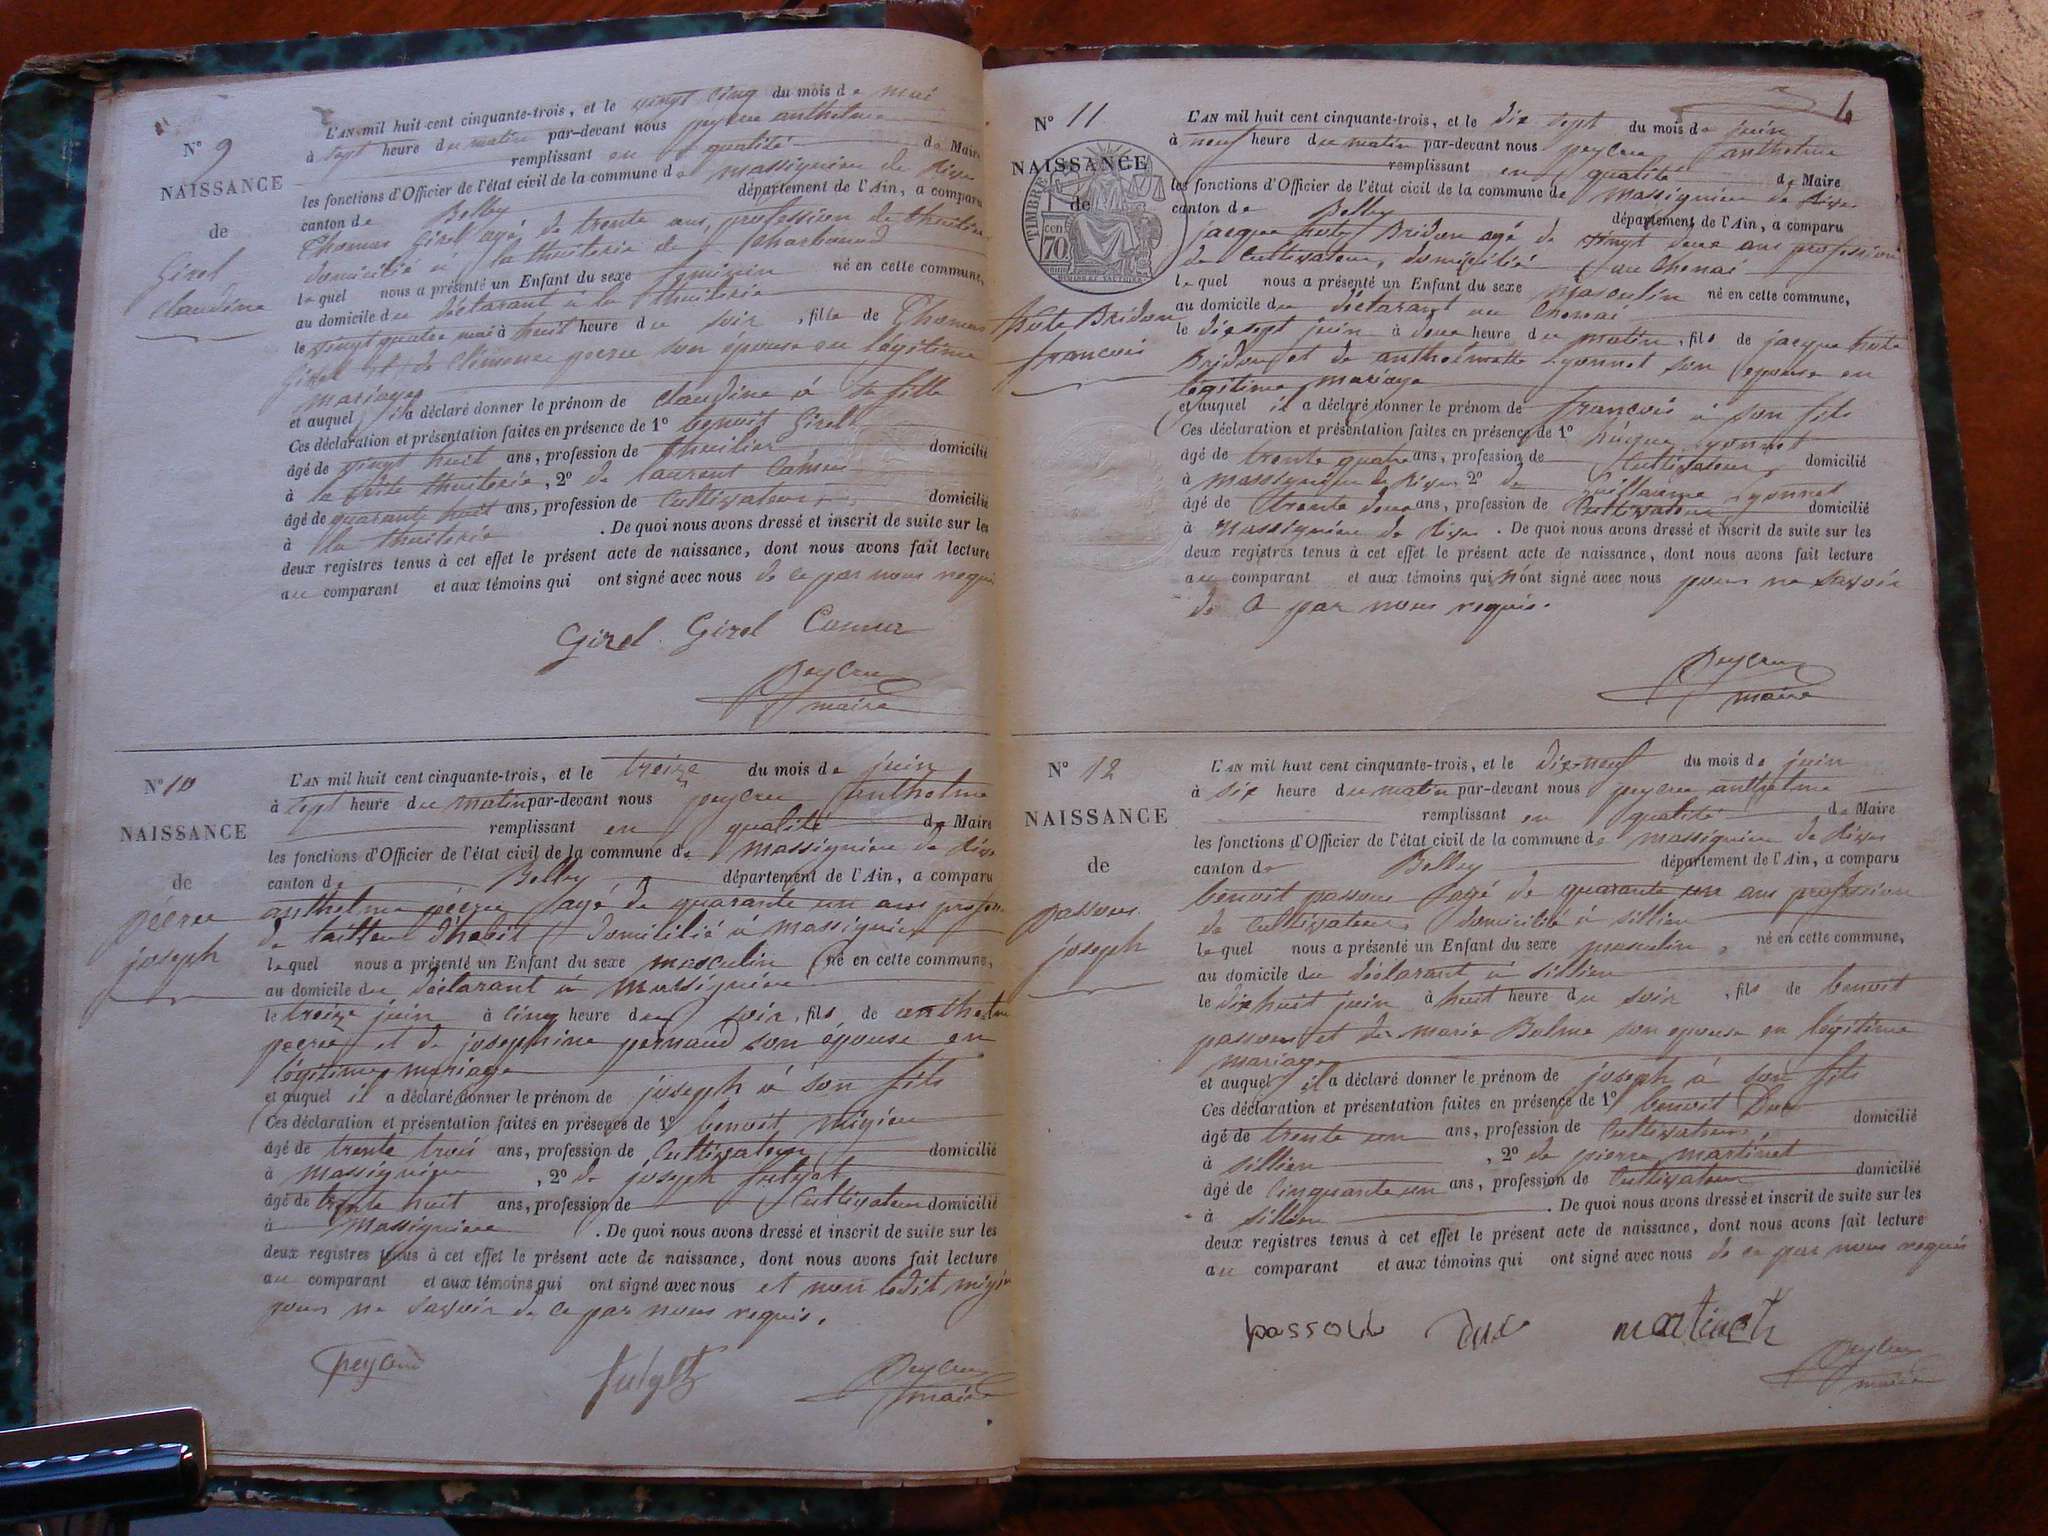 N° 9
NAISSANCE
de
Girel
claudine
L'AN mil huit cent cinquante-trois, et le vingt cinq du mois de mai
à sept heure du matin par-devant nous peycru anthelme
remplissant en qualité de Maire
les fonctions d'Officier de l'état civil de la commune de massignieu de Rives
canton de Belley département de l'Ain, a comparu
Thomas Girel agé de trente ans, profession de thuilier
domicilié à la thuilerie de Charbonod
lequel nous a présenté un Enfant du sexe féminin né en cette commune,
au domicile du déclarant à la thuilerie
le vingt quatre mai à huit heure du soir, fille de Thomas
Girel et de Clémence son épouse en légitime
mariage
et auquel il a déclaré donner le prénom de claudine à sa fille
Ces déclaration et présentation faites en présence de 1° benoit Girel
âgé de vingt huit ans, profession de thuilier domicilié
à la dite thuilerie, 2° de laurent
âgé de quarante huit ans, profession de Cultivateur, domicilié
à la thuilerie. De quoi nous avons dressé et inscrit de suite sur les
deux registres tenus à cet effet le présent acte de naissance, dont nous avons fait lecture
au comparant et aux témoins qui ont signé avec nous de ce par nous requis
Girel Girel
Peycru
maire
N° 10
NAISSANCE
de
joseph
L'AN mil huit cent cinquante-trois, et le treize du mois de juin
à sept heure du matin par-devant nous peycru anthelme
remplissant en qualité de Maire
les fonctions d'Officier de l'état civil de la commune de massignieu de Rives
canton de Belley département de l'Ain, a comparu
anthelme agé de quarante un ans profession
de tailleur d'habit domicilié à massignieu
lequel nous a présenté un Enfant du sexe masculin né en cette commune,
au domicile du déclarant à massignieu
le treize juin à cinq heure du soir, fils de anthelme
et de josephine pernaud son épouse en
légitime mariage
et auquel il a déclaré donner le prénom de joseph à son fils
Ces déclaration et présentation faites en présence de 1° benoit migieu
âgé de trente trois ans, profession de Cultivateur domicilié
à Massignieu, 2° de joseph
âgé de trente huit ans, profession de Cultivateur domicilié
à Massignieu. De quoi nous avons dressé et inscrit de suite sur les
deux registres tenus à cet effet le présent acte de naissance, dont nous avons fait lecture
au comparant et aux témoins qui ont signé avec nous et non ledit migieu
pour ne savoir de ce par nous requis.
Peycru
maire
N° 11
NAISSANCE
de
hote Bridon
francois
TIMBRE
70
L'AN mil huit cent cinquante-trois, et le dix sept du mois de juin
à neuf heure du matin par-devant nous peycru anthelme
remplissant en qualité de Maire
les fonctions d'Officier de l'état civil de la commune de Massignieu de Rives
canton de Belley département de l'Ain, a comparu
jacque hote Bridon agé de vingt deux ans profession
de Cultivateur, domicilié au Chenai
lequel nous a présenté un Enfant du sexe masculin né en cette commune,
au domicile du déclarant au Chenai
le dix sept juin à deux heure du matin, fils de jacque hote
Bridon et de anthelmette Lyonnet son épouse en
légitime mariage
et auquel il a déclaré donner le prénom de françois à son fils
Ces déclaration et présentation faites en présence de 1° Lyonnet
âgé de trente quatre ans, profession de Cultivateur, domicilié
à massignieu de Rives 2° de Guillaume Lyonnet
âgé de trente deux ans, profession de Cultivateur domicilié
à Massignieu de Rives. De quoi nous avons dressé et inscrit de suite sur les
deux registres tenus à cet effet le présent acte de naissance, dont nous avons fait lecture
au comparant et aux témoins qui n'ont signé avec nous pour ne savoir
de ce par nous requis.
Peycru
maire
N° 12
NAISSANCE
de
passous
joseph
L'AN mil huit cent cinquante-trois, et le dix-neuf du mois de juin
à six heure du matin par-devant nous peycru anthelme
remplissant en qualité de Maire
les fonctions d'Officier de l'état civil de la commune de massignieu de Rives
canton de Belley département de l'Ain, a comparu
benoit passous agé de quarante un ans profession
de Cultivateur domicilié à sillien
lequel nous a présenté un Enfant du sexe masculin, né en cette commune,
au domicile du déclarant à sillien
le dix huit juin à huit heure du soir, fils de benoit
passous et de marie Balme son épouse en légitime
mariage
et auquel il a déclaré donner le prénom de joseph à son fils
Ces déclaration et présentation faites en présence de 1° benoit Duc
âgé de trente un ans, profession de Cultivateur, domicilié
à sillien, 2° de pierre martinet
âgé de Cinquante un ans, profession de Cultivateur domicilié
à sillien. De quoi nous avons dressé et inscrit de suite sur les
deux registres tenus à cet effet le présent acte de naissance, dont nous avons fait lecture
au comparant et aux témoins qui ont signé avec nous de ce par nous requis
Duc
Peycru
maire